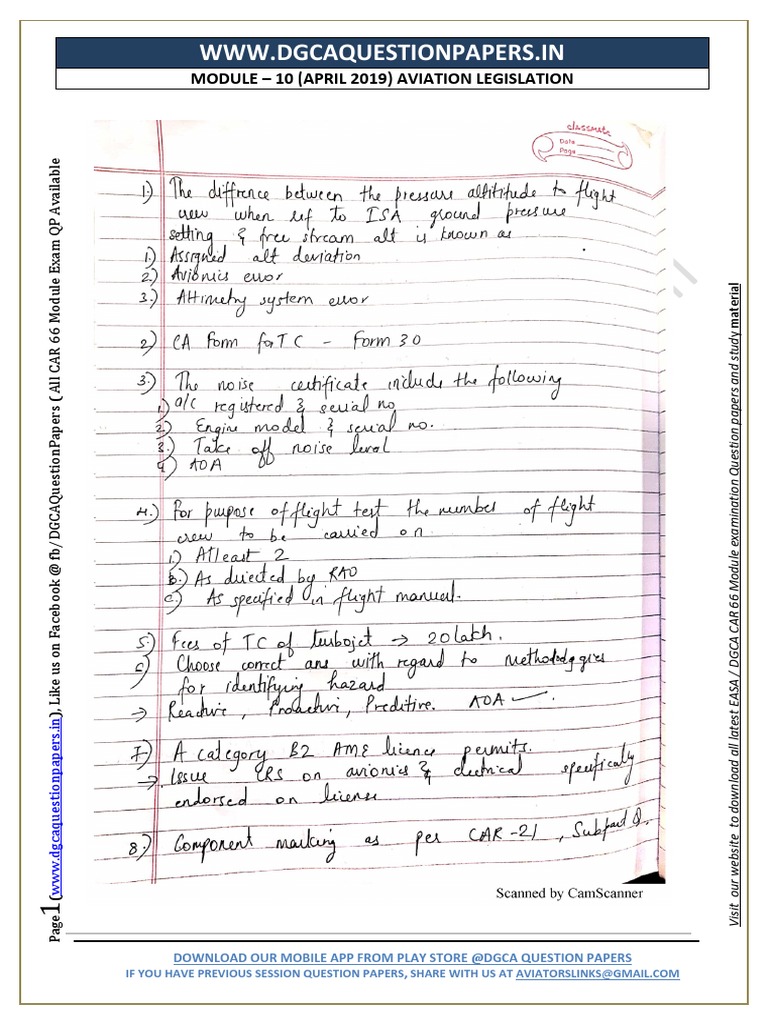 WWW.DGCAQUESTIONPAPERS.IN
MODULE – 10 (APRIL 2019) AVIATION LEGISLATION
classmate
Date
Page
1) The diffrence between the pressure altititude to flight
crew when ref to ISA ground pressure
setting & free stream alt is known as
1.) Assigned alt deviation
2.) Avionics error
3.) Altimetry system error
2) CA Form for TC - Form 30
3.) The noise certificate include the following
1.) a/c registered & serial no
2.) Engine model & serial no.
3.) Take off noise level
4) AOA
4.) For purpose of flight test the number of flight
crew to be carried on
1.) Atleast 2
b.) As directed by RAO
c) As specified in flight manual.
5.) Fees of TC of turbojet → 20 lakh.
6) Choose correct ans with regard to methodoggies
for identifying hazard
→ Reactive, Proactive, Preditive. AOA
7.) A category B2 AME licence permits.
→ Issue CRS on avionics & electrical specifically
endorsed on license
8.) Component marking as per CAR-21, Subpart Q.
Scanned by CamScanner
Page1 (www.dgcaquestionpapers.in), Like us on Facebook @ fb/ DGCAQuestionPapers ( All CAR 66 Module Exam QP Available
Visit our website to download all latest EASA / DGCA CAR 66 Module examination Question papers and study material
DOWNLOAD OUR MOBILE APP FROM PLAY STORE @DGCA QUESTION PAPERS
IF YOU HAVE PREVIOUS SESSION QUESTION PAPERS, SHARE WITH US AT AVIATORSLINKS@GMAIL.COM